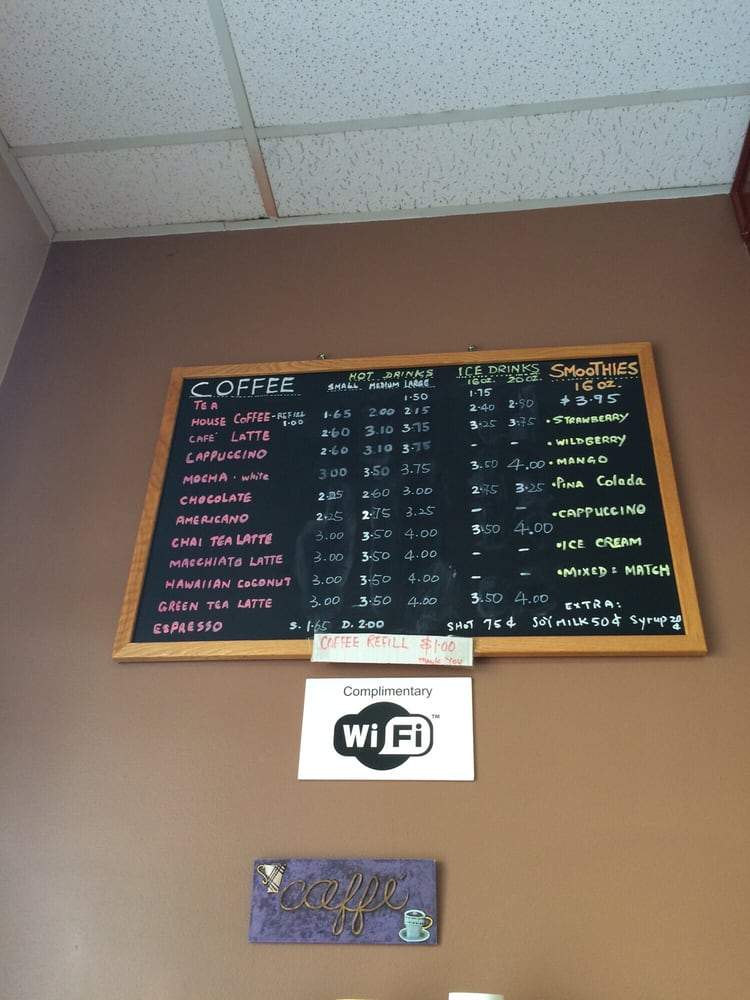 COFFEE HOT DRINKS ICE DRINKS SMOOTHIES
SMALL MEDIUM LARGE 16 oz. 20 oz. 16 oz.
TEA 1.50 1.75 $3.95
HOUSE COFFEE - REFILL 1.00 1.65 2.00 2.15 2.40 2.90
CAFE' LATTE 2.60 3.10 3.75 3.25 3.75 • STRAWBERRY
CAPPUCCINO 2.60 3.10 3.75 - - • WILDBERRY
MOCHA • white 3.00 3.50 3.75 3.50 4.00 • MANGO
CHOCOLATE 2.60 3.00 2.75 3.25 • Pina Colada
AMERICANO 2.25 2.75 3.25 - - • CAPPUCCINO
CHAI TEA LATTE 3.00 3.50 4.00 3.50 4.00
MACCHIATO LATTE 3.00 3.50 4.00 - - • ICE CREAM
HAWAIIAN COCONUT 3.00 3.50 4.00 - - • MIXED = MATCH
GREEN TEA LATTE 3.00 3.50 4.00 3.50 4.00 EXTRA:
ESPRESSO S. 1.65 D. 2.00 SHOT 75¢ SOY MILK 50¢ Syrup 20¢
COFFEE REFILL $1.00
THANK YOU
Complimentary
Wi Fi TM
caffé